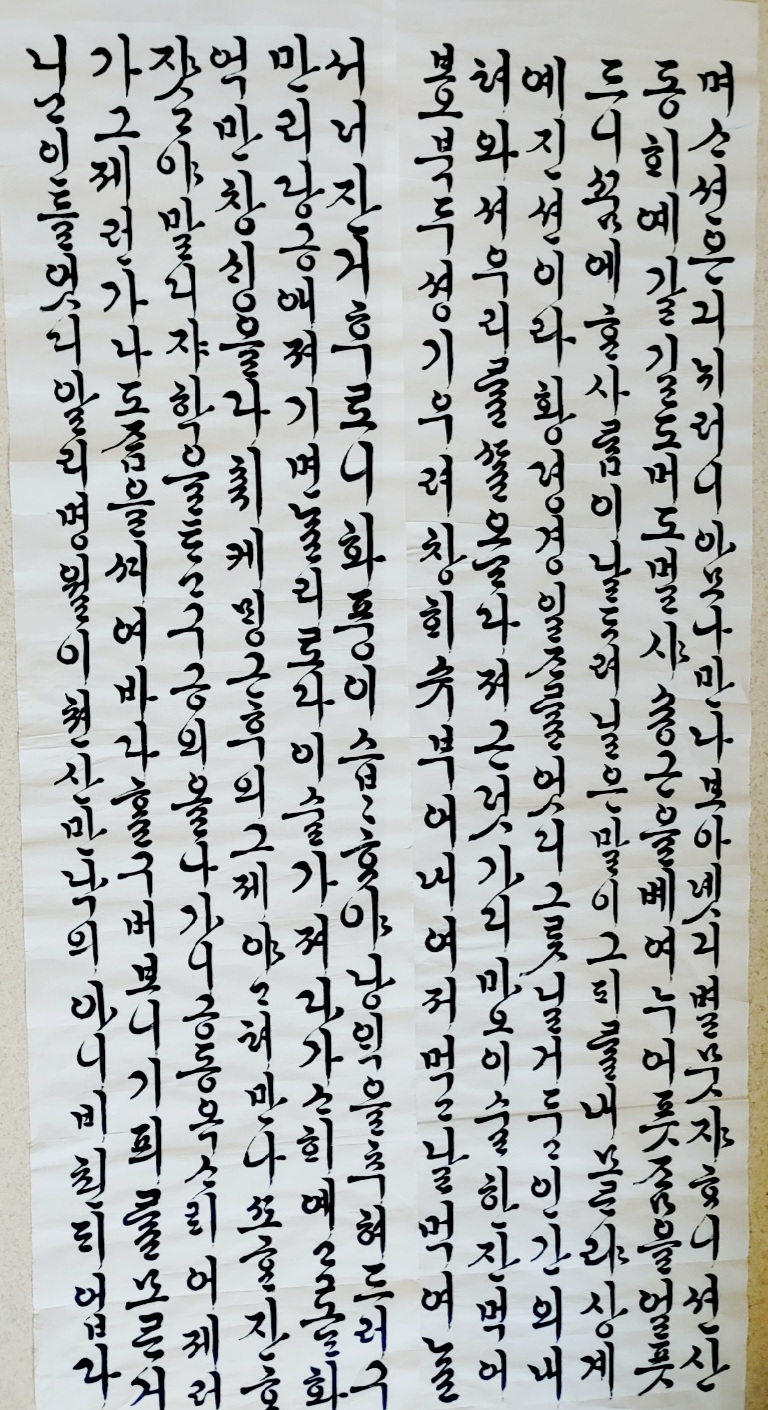 며 ᄉᆞ션은 긔 뉘러니 아모나 만나보아 녯 긔별 뭇쟈 ᄒᆞ니 션산
동ᄒᆡ예 갈 길도 머도 멀샤 숑근을 볘여 누어 픗ᄌᆞᆷ을 얼픗
드니 ᄭᅮᆷ에 ᄒᆞᆫ 사ᄅᆞᆷ이 날ᄃᆞ려 닐은 말이 그ᄃᆡᄅᆞᆯ 내 모ᄅᆞ랴 상계
예 진션이라 황뎡경 일ᄌᆞᄅᆞᆯ 엇디 그릇 닐거 두고 인간의 내
텨와셔 우리ᄅᆞᆯ ᄯᆞᆯ오ᄂᆞᆫ다 져근덧 가디 마오 이 술 한 잔 먹어
보오 북두셩 기우려 창ᄒᆡ슈 부어내여 저 먹고 날 먹여ᄂᆞᆯ
서너 잔 거후로니 화풍이 습습ᄒᆞ야 냥익을 추혀드러 구
만리 댱공애 져기면 ᄂᆞᆯ리로다 이 술 가져다가 ᄉᆞᄒᆡ예 고로 ᄂᆞᆫ화
억만창ᄉᆡᆼ을 다 취케 ᄆᆡᆼ근 후의 그제야 고텨 만나 ᄯᅩ ᄒᆞᆫ 잔 ᄒᆞ
쟛고야 말 디쟈 학을 ᄐᆞ고 구공의 올나가니 공듕 옥쇼ᄅᆡ 어제러
가 그제런가 나도 ᄌᆞᆷ을 ᄭᆡ여 바다ᄒᆞᆯ 구버보니 기픠ᄅᆞᆯ 모ᄅᆞ거
니 ᄀᆞ인들 엇디 알리 명월이 쳔산만낙의 아니 비쵠 ᄃᆡ 업다